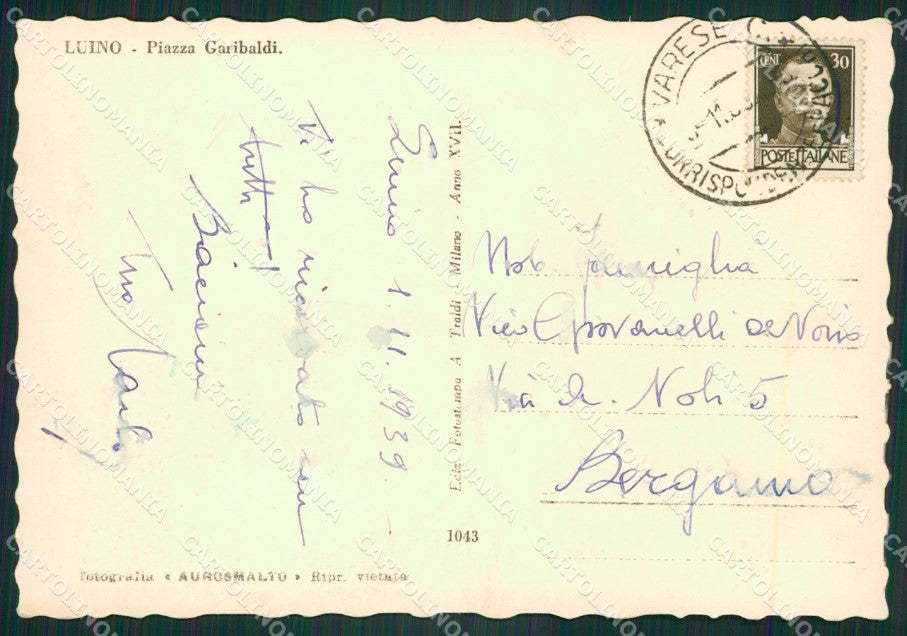 LUINO - Piazza Garibaldi.
VARESE C.
CORRISPONDENZA PACCHI
CENT 30
POSTE ITALIANE
Luino 1.11.1939
Vi ho ricordato con
tutti
Bacioni
Ediz. Fotostampa A Traldi Milano - Anno XVII.
Nob. famiglia
Vico Giovanelli
Via A. Noli 5
Bergamo
1043
Fotografia « AUROSMALTO » Ripr. vietata
CARTOLINOMANIA